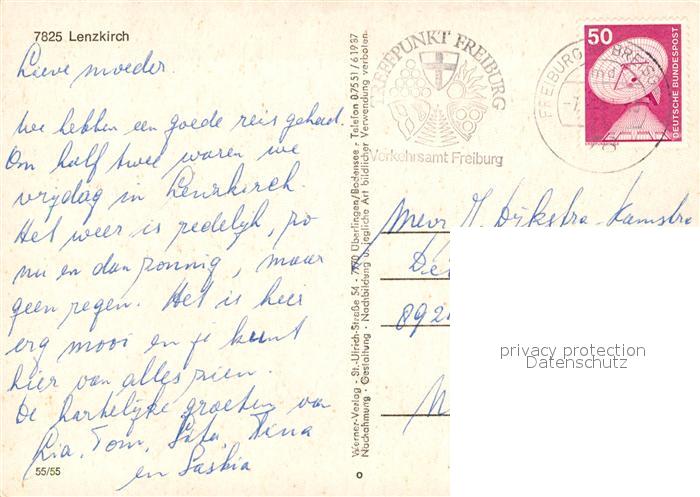 7825 Lenzkirch
Lieve moeder.
We hebben een goede reis gehad.
Om half twee waren we
vrijdag in Lenzkirch.
Het weer is redelijk, zo
nu en dan zonnig, maar
geen regen. Het is hier
erg mooi en je kunt
hier van alles zien.
De hartelijke groeten van
Ria, Tom, Sita, Tina
en Saskia
55/55
Werner-Verlag · St.-Ulrich-Straße 54 · 7770 Überlingen/Bodensee · Telefon 07551/61937
Nachahmung · Gestaltung · Nachbildung u. jegliche Art bildlicher Verwendung verboten.
TREFFPUNKT FREIBURG
Verkehrsamt Freiburg
FREIBURG BREISG
50
DEUTSCHE BUNDESPOST
Mevr. Dijkstra-Kamstra
892
privacy protection
Datenschutz